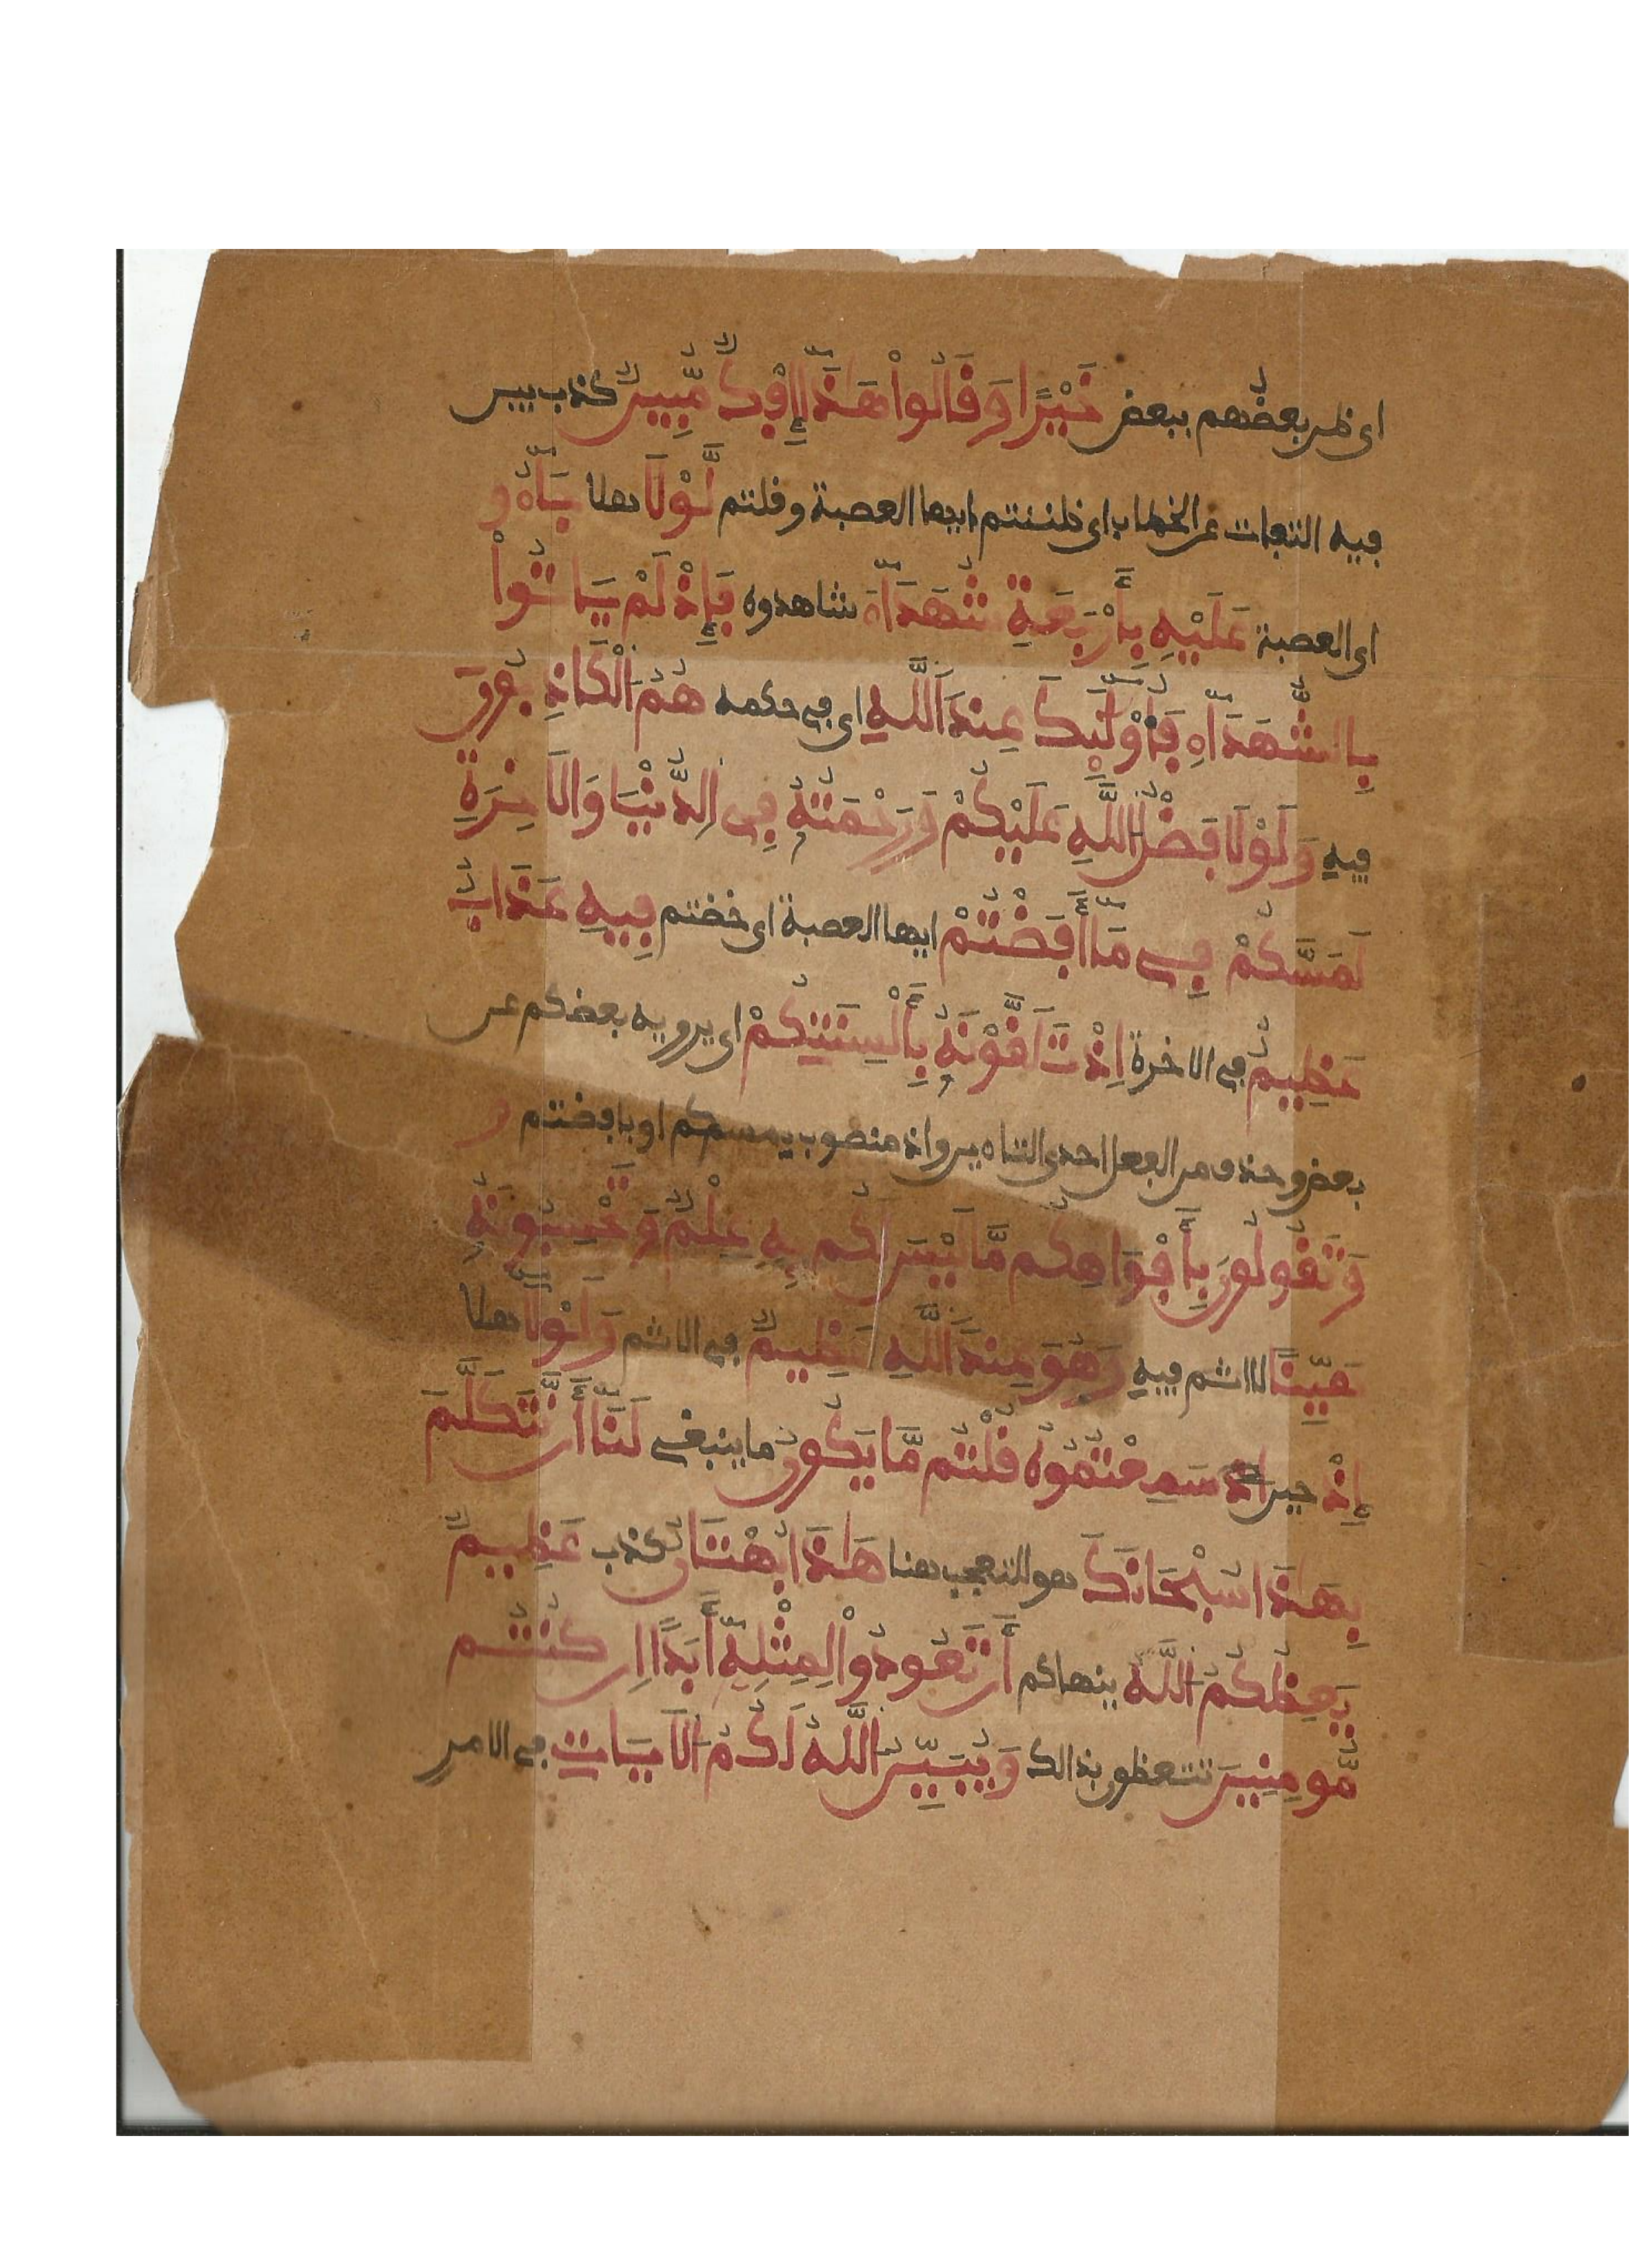 اى ظن بعضهم ببعض خَيْرًا وَقَالُواْ هَٰذَآ إِفْكٌ مُّبِينٌ كذب بين
فيه التفات عن الخطاب اى ظننتم ايها العصبة وقلتم لَّوْلَا هلا جَآءُو
اى العصبة عَلَيْهِ بِأَرْبَعَةِ شُهَدَآءَ شاهدوه فَإِذْ لَمْ يَاتُواْ
بِالشُّهَدَآءِ فَأُوْلَٰٓئِكَ عِندَ اَللَّهِ اى فى حكمه هُمُ اَلْكَاذِبُونَ
فيه وَلَوْلَا فَضْلُ اللَّهِ عَلَيْكُمْ وَرَحْمَتُهُ فِى اِلدُّنْيَا وَالَاخِرَةِ
لَمَسَّكُمْ فِى مَآ أَفَضْتُمْ ايها العصبة اى خضتم فِيهِ عَذَابٌ
عَظِيمٌ فى الاخرة اِذْ تَلَقَّوْنَهُ بِأَلْسِنَتِكُمْ اى يرويه بعضكم عن
بعض وحذف من الفعل احدى التاءين واذ منصوب بمسكم او بافضتم
وَتَقُولُونَ بِأَفْوَاهِكُم مَّا لَيْسَ لَكُم بِهِ عِلْمٌ وَتَحْسِبُونَهُ
هَيِّنًا لا اثم فيه وَهُوَ عِندَ اَللَّهِ عَظِيمٌ فى الاثم وَلَوْلَآ هلا
إِذْ حين اذ سَمِعْتُمُوهُ قُلْتُم مَّا يَكُونُ ما ينبغى لَنَآ أَن نَّتَكَلَّمَ
بِهَٰذَا سُبْحَانَكَ هو للتعجب هنا هَٰذَا بُهْتَانٌ كذب عَظِيمٌ
يَعِظُكُمُ اَللَّهُ ينهاكم أَن تَعُودُواْ لِمِثْلِهِ أَبَدًا اِن كُنتُم
مُّومِنِينَ تتعظون بذالك وَيُبَيِّنُ اَللَّهُ لَكُمُ اَلَايَاتِ فى الامر